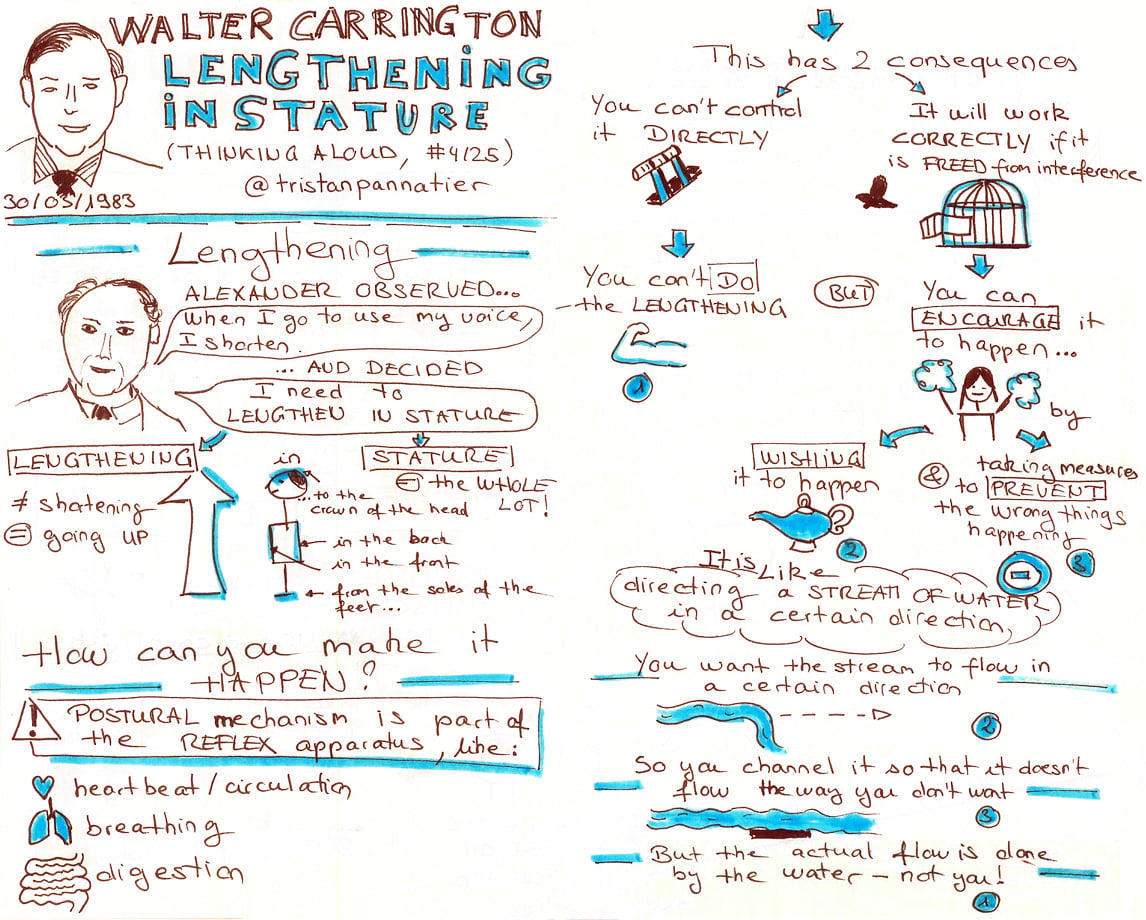 WALTER CARRINGTON
LENGTHENING
IN STATURE
(THINKING ALOUD, #4/25)
@tristanpannatier
30/03/1983
Lengthening
ALEXANDER OBSERVED...
when I go to use my voice,
I shorten.
... AND DECIDED
I need to
LENGTHEN IN STATURE
LENGTHENING
≠ shortening
= going up
in
STATURE
= the WHOLE
LOT!
...to the
crown of the head
in the back
in the front
from the soles of the
feet...
How can you make it
HAPPEN?
! POSTURAL mechanism is part of
the REFLEX apparatus, like:
heartbeat / circulation
breathing
digestion
This has 2 consequences
You can't control
it DIRECTLY
You can't DO
the LENGTHENING
1
BUT
It will work
CORRECTLY if it
is FREED from interference
You can
ENCOURAGE it
to happen...
by
WISHING
it to happen
2
& taking measures
to PREVENT
the wrong things
happening
3
It is like
directing a STREAM OF WATER
in a certain direction
You want the stream to flow in
a certain direction
2
So you channel it so that it doesn't
flow the way you don't want
3
But the actual flow is done
by the water – not you!
1